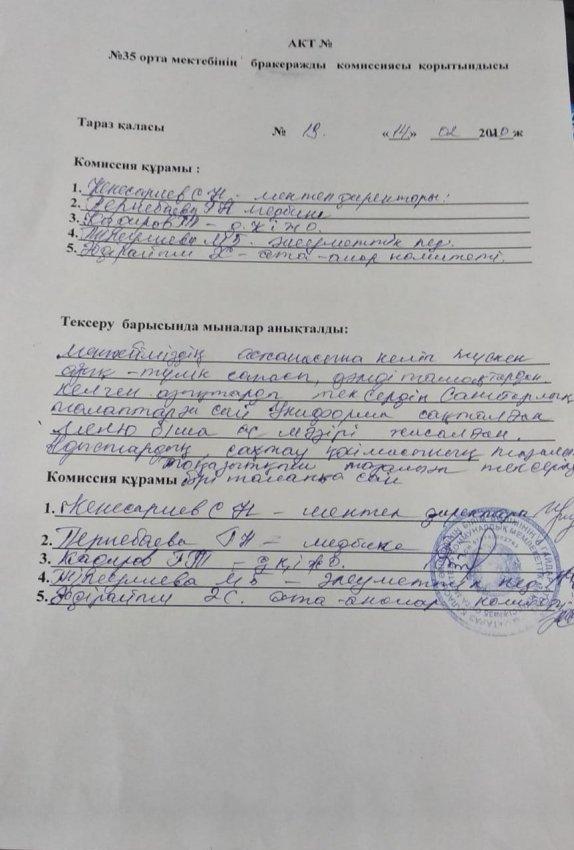 АКТ №
№35 орта мектебінің бракеражды комиссиясы қорытындысы
Тараз қаласы № 19. «14» 02 2010 ж
Комиссия құрамы :
1. Кенесариев С Н - мектеп директоры:
2. Пернебаева ГН медбике
3. Кадиров ГТ -
4. МБ. әлеуметтік пед.
5. Әдірайым - ата-аналар комитеті.
Тексеру барысында мыналар анықталды:
мектебіміздің асханасына келіп түскен
азық-түлік сапасы, дәмді тағамдардан
келген азықтарды тексердік Санитарлық
талаптарға сай Униформа сақталған
Меню бойша ас мәзірі жасалған.
Ыдыстардың, сақтау
тоңазытқыш
Комиссия құрамы бәрі талапқа сай
1. Кенесариев С Н - мектеп директоры
2. Пернебаева ГН - медбике
3. Кадиров ГТ -
4. МБ - Әлеуметтік пед
5. Әдірайым ата-аналар комитеті